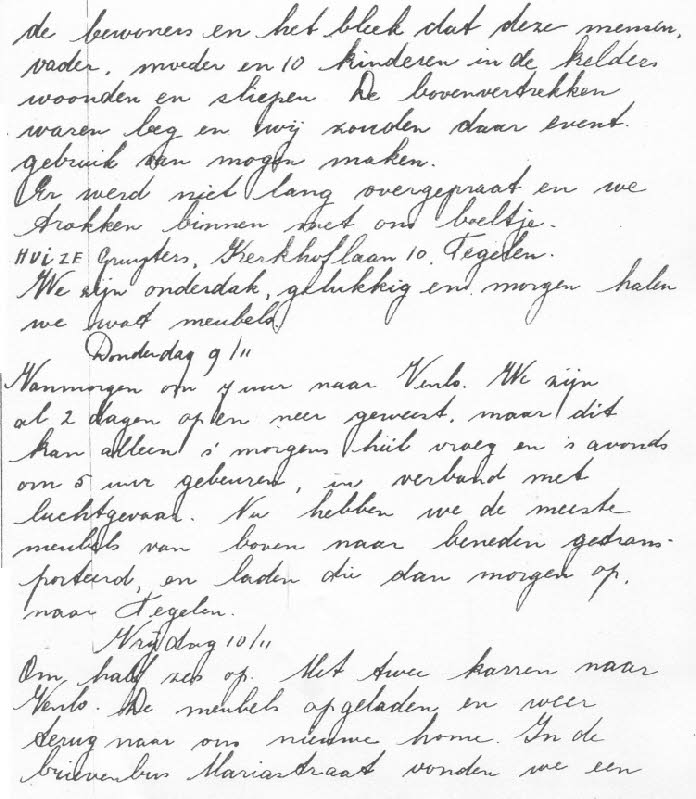 de bewoners en het bleek dat deze mensen,
vader, moeder en 10 kinderen in de kelders
woonden en sliepen. De bovenvertrekken
waren leeg en wij zouden daar event.
gebruik van mogen maken.
Er werd niet lang overgepraat en we
trokken binnen met ons boeltje.
HUIZE Gruyters, Kerkhoflaan 10. Tegelen.
We zijn onderdak, gelukkig en morgen halen
we wat meubels.
Donderdag 9/11
Vanmorgen om 7 uur naar Venlo. We zijn
al 2 dagen op en neer geweest, maar dit
kan alleen s' morgens heel vroeg en 's avonds
om 5 uur gebeuren, in verband met
luchtgevaar. Nu hebben we de meeste
meubels van boven naar beneden getrans-
porteerd, en laden die dan morgen op,
naar Tegelen.
Vrijdag 10/11
Om half zes op. Met twee karren naar
Venlo. De meubels opgeladen en weer
terug naar ons nieuwe home. In de
brievenbus Mariastraat vonden we een